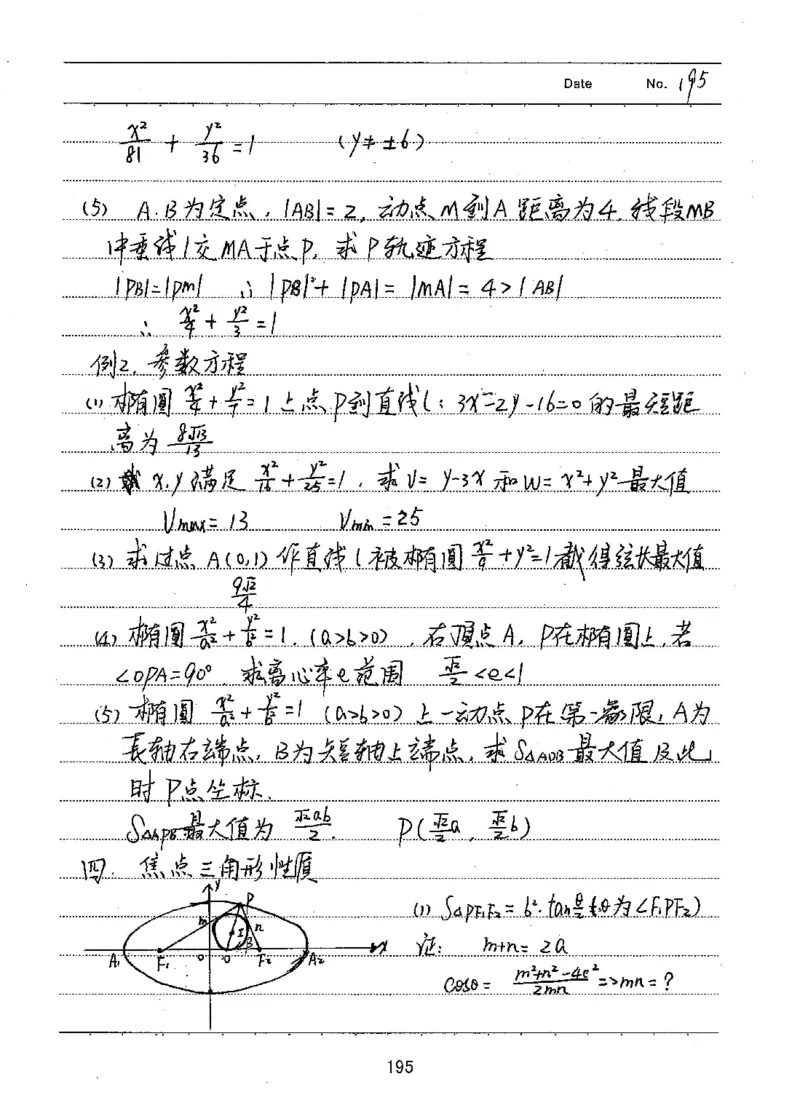 Date No. 195
x²/81 + y²/36 = 1 (y ≠ ±6)
(5) A.B为定点, |AB|=2, 动点M到A距离为4, 线段MB
中垂线l交MA于点P, 求P轨迹方程
|PB|=|PM| ∴ |PB|+|PA|=|MA|=4>|AB|
∴ x²/4 + y²/3 = 1
例2. 参数方程
(1) 椭圆 x²/4 + y²/7 = 1 上点P到直线l: 3x-2y-16=0 的最短距
离为 8√13/13
(2) x,y满足 x²/16 + y²/25 = 1, 求V= y-3x 和 W= x²+y² 最大值
Vmax = 13 Vmin = 25
(3) 求过点 A(0,1) 作直线l被椭圆 x²/9 + y²=1 截得弦长最大值
9√2/4
(4) 椭圆 x²/a² + y²/b² = 1. (a>b>0), 右顶点A, P在椭圆上, 若
∠OPA=90°, 求离心率e范围 √2/2 <e<1
(5) 椭圆 x²/a² + y²/b² = 1 (a>b>0) 上一动点P在第一象限, A为
长轴右端点, B为短轴上端点, 求S△AOB 最大值及此
时P点坐标.
S△APB最大值为 √2ab/2. P(√2/2 a, √2/2 b)
四. 焦点三角形性质
y P m n I β A₁ F₁ O D F₂ A₂ x
(1) S△PF₁F₂ = b²·tan θ/2 (θ为∠F₁PF₂)
证: m+n = 2a
cosθ = (m²+n²-4c²)/2mn => mn = ?
195